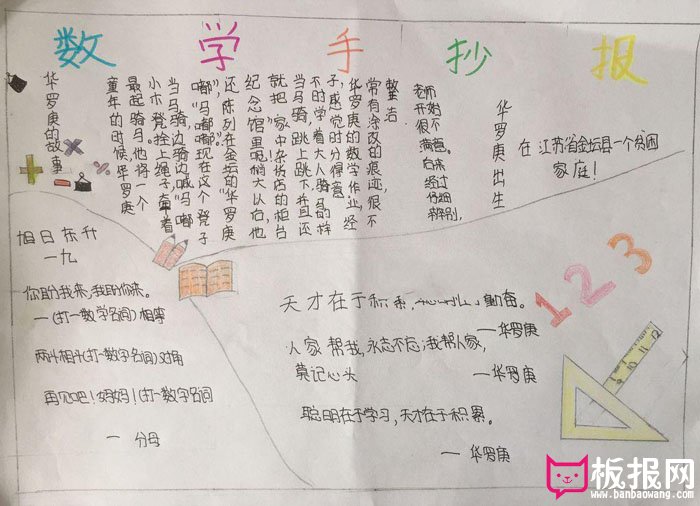 数 学 手 抄 报
华罗庚的故事
童年的时候华罗庚
最起骑马,他将一个
小木凳拴上绳子牵着
当马骑,边骑边喊“马嘟
嘟”,“马嘟嘟”现在这个凳子
还陈列在金坛的“华罗庚
纪念馆里呢稍大以后,他
就把家中杂货店的柜台
当马骑,跳上跳下,并且还
不时学着大人骑马的样
子,感觉时分得意
华罗庚的数学作业,经
常有涂改的痕迹,很不
整洁
老师
开始
很不
满意。
后来
经过
仔细
辨别,
华罗庚出生
在 江苏省金坛县一个贫困
家庭!
旭日东升
一九
你盼我来,我盼你来。
—(打一数学名词)相等
(打一数学名词)对角
再见吧!妈妈!(打一数学名词
— 分母
天才在于积累,
—华罗庚
人家帮我,永志不忘;我帮人家,
莫记心头
—华罗庚
聪明在于学习,天才在于积累。
—华罗庚
123
9 10 11 12
板报网
www.banbaowang.com